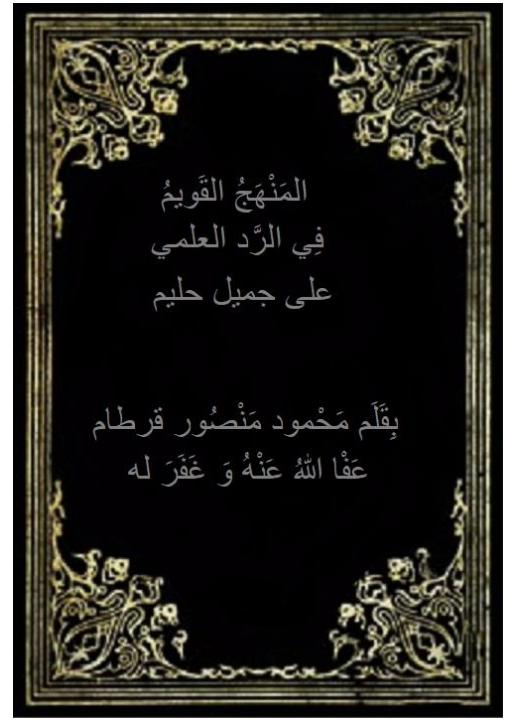 المَنْهَجُ القَويمُ
فِي الرَّد العلمي
على جميل حليم
بِقَلَم مَحْمود مَنْصُور قرطام
عَفْا اللهُ عَنْهُ وَ غَفَرَ له